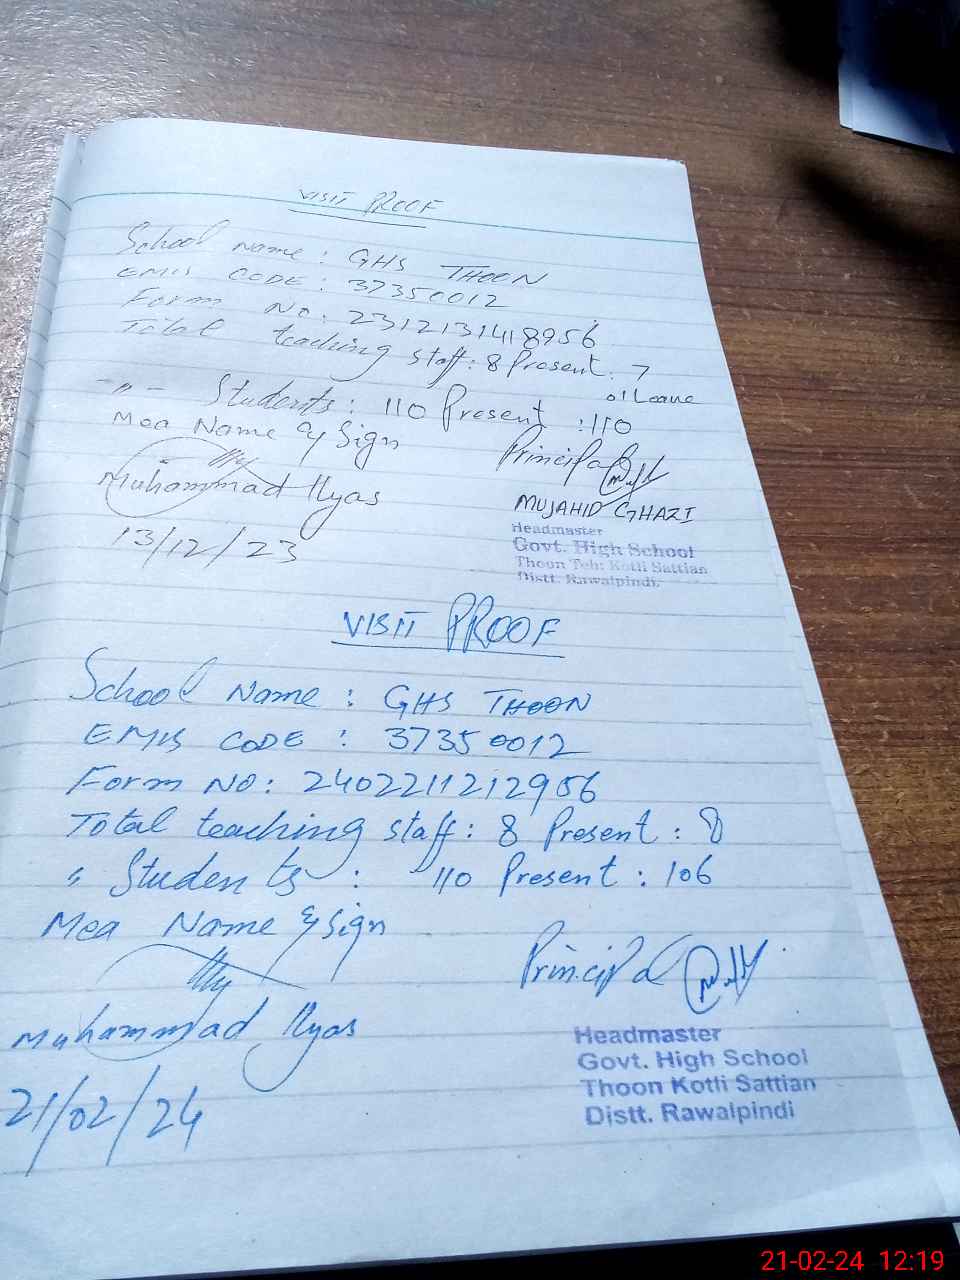 VISIT PROOF
School Name : GHS THOON
EMIS CODE : 37350012
Form No: 2312131418956
Total teaching staff: 8 Present: 7
01 Leave
-"- Students: 110 Present :110
Mea Name & Sign
Principal
Muhammad Ilyas
MUJAHID GHAZI
13/12/23
Headmaster
Govt. High School
Thoon Teh: Kotli Sattian
Distt. Rawalpindi.
VISIT PROOF
School Name : GHS THOON
EMIS CODE : 37350012
Form No: 2402211212956
Total teaching staff: 8 Present : 8
" Students : 110 Present : 106
Mea Name & Sign
Principal
Muhammad Ilyas
21/02/24
Headmaster
Govt. High School
Thoon Kotli Sattian
Distt. Rawalpindi
21-02-24 12:19